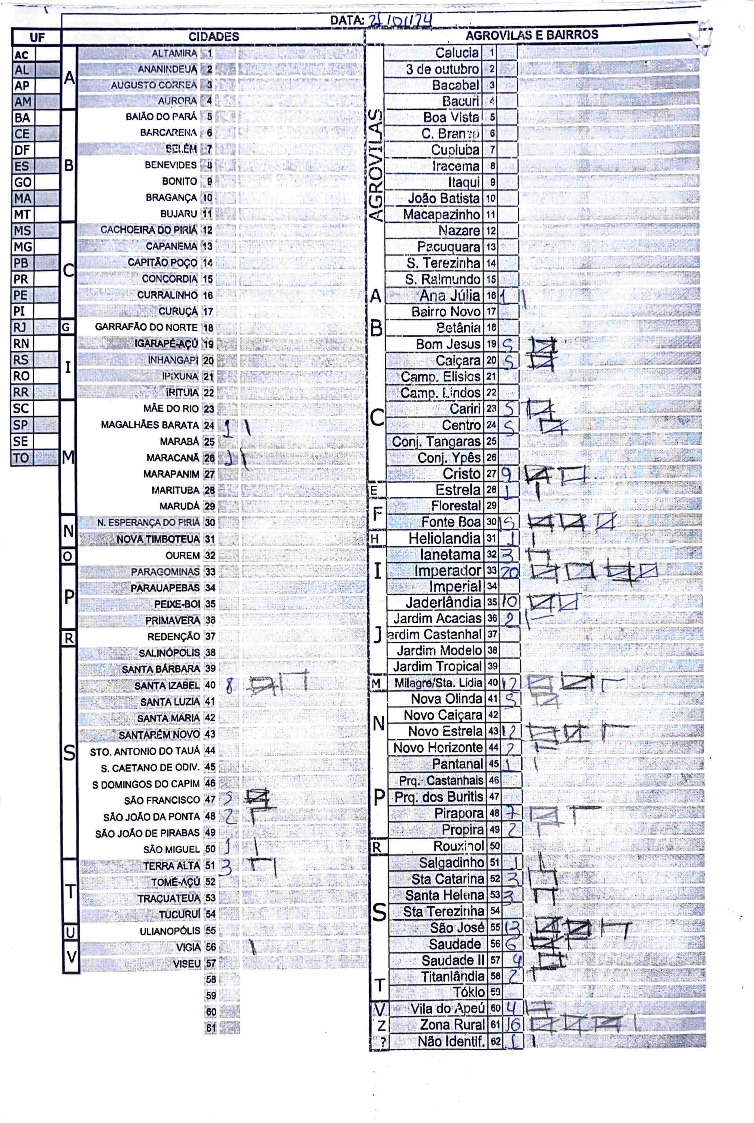 DATA: 21/01/74
UF CIDADES AGROVILAS E BAIRROS
AC
AL
AP
AM
BA
CE
DF
ES
GO
MA
MT
MS
MG
PB
PR
PE
PI
RJ
RN
RS
RO
RR
SC
SP
SE
TO
A
ALTAMIRA 1
ANANINDEUA 2
AUGUSTO CORREA 3
AURORA 4
B
BAIÃO DO PARÁ 5
BARCARENA 6
BELÉM 7
BENEVIDES 8
BONITO 9
BRAGANÇA 10
BUJARU 11
C
CACHOEIRA DO PIRIÁ 12
CAPANEMA 13
CAPITÃO POÇO 14
CONCORDIA 15
CURRALINHO 16
CURUÇÁ 17
G
GARRAFÃO DO NORTE 18
I
IGARAPÉ-AÇÚ 19
INHANGAPI 20
IPIXUNA 21
IRITUIA 22
M
MÃE DO RIO 23
MAGALHÃES BARATA 24 1
MARABÁ 25
MARACANÃ 26 1
MARAPANIM 27
MARITUBA 28
MARUDÁ 29
N
N. ESPERANÇA DO PIRIÁ 30
NOVA TIMBOTEUA 31
O
OUREM 32
P
PARAGOMINAS 33
PARAUAPEBAS 34
PEIXE-BOI 35
PRIMAVERA 36
R
REDENÇÃO 37
S
SALINÓPOLIS 38
SANTA BÁRBARA 39
SANTA IZABEL 40 8
SANTA LUZIA 41
SANTA MARIA 42
SANTARÉM NOVO 43
STO. ANTONIO DO TAUÁ 44
S. CAETANO DE ODIV. 45
S DOMINGOS DO CAPIM 46
SÃO FRANCISCO 47 5
SÃO JOÃO DA PONTA 48 2
SÃO JOÃO DE PIRABAS 49
SÃO MIGUEL 50 1
T
TERRA ALTA 51 3
TOMÉ-AÇÚ 52
TRACUATEUA 53
TUCURUÍ 54
U
ULIANÓPOLIS 55
V
VIGIA 56
VISEU 57
58
59
60
61
AGROVILAS
Calucia 1
3 de outubro 2
Bacabal 3
Bacuri 4
Boa Vista 5
C. Branco 6
Cupiuba 7
Iracema 8
Itaqui 9
João Batista 10
Macapazinho 11
Nazare 12
Pacuquara 13
S. Terezinha 14
S. Raimundo 15
A
Ana Júlia 16 1
B
Bairro Novo 17
Betânia 18
Bom Jesus 19 5
C
Caiçara 20 5
Camp. Elisios 21
Camp. Lindos 22
Cariri 23 5
Centro 24 5
Conj. Tangaras 25
Conj. Ypês 26
Cristo 27 9
E
Estrela 28 1
F
Florestal 29
Fonte Boa 30 15
H
Heliolandia 31 1
I
Ianetama 32 3
Imperador 33 20
Imperial 34
J
Jaderlândia 35 10
Jardim Acacias 36 2
Jardim Castanhal 37
Jardim Modelo 38
Jardim Tropical 39
M
Milagre/Sta. Lidia 40 12
N
Nova Olinda 41 5
Novo Caiçara 42
Novo Estrela 43 12
Novo Horizonte 44 2
P
Pantanal 45 1
Prq. Castanhais 46
Prq. dos Buritis 47
Pirapora 48 7
Propira 49 2
R
Rouxinol 50
S
Salgadinho 51 1
Sta Catarina 52 3
Santa Helena 53 3
Sta Terezinha 54
São José 55 13
Saudade 56 6
Saudade II 57 4
T
Titanlândia 58 2
Tóklo 59
V
Vila do Apeú 60 4
Z
Zona Rural 61 16
?
Não Identif. 62 1